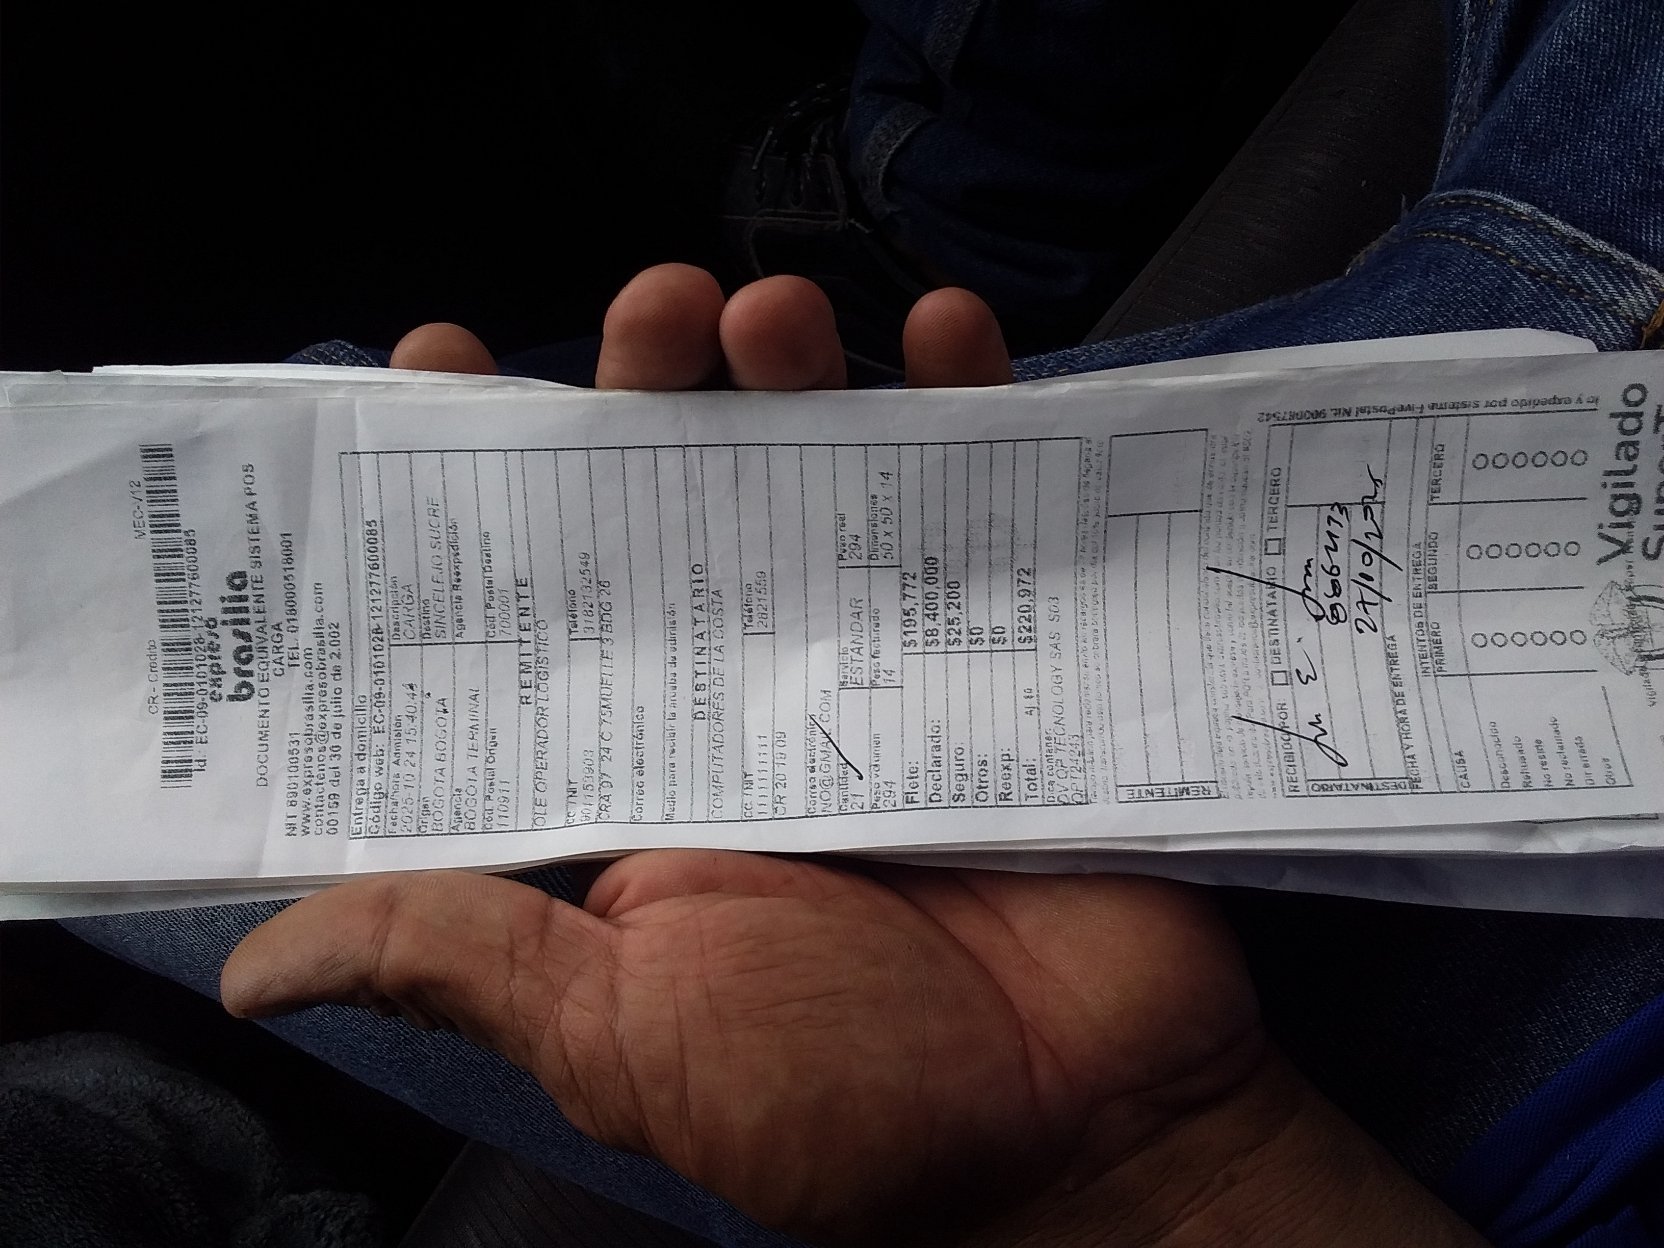 CR - Credito MEC-/12
Id: EC-09-0101028-1212777600085
expreso
brasilia
DOCUMENTO EQUIVALENTE SISTEMA POS
CARGA
NIT 890100531 TEL. 018000518001
www.expresobrasilia.com
contactenos@expresobrasilia.com
00159 del 30 de julio de 2.002
Entrega a domicilio
Código web: EC-09-0101028-1212777600085
Fecha/hora Admisión Descripción
2025-10-24 15:40:43 CARGA
Origen Destino
BOGOTA BOGOTA SINCELEJO SUCRE
Agencia Agencia Reexpedición
BOGOTA TERMINAL
Cod Postal Origen Cod Postal Destino
110911 700001
REMITENTE
OLE OPERADOR LOGISTICO
CC / NIT Teléfono
901153903 3182132549
CRA DT 24 C 75 MUELLE 3 BDG 26
Correo electrónico
Medio para recibir la prueba de admisión
DESTINATARIO
COMPUTADORES DE LA COSTA
CC / NIT Teléfono
1111111111 2821559
CR 20 19 09
Correo electrónico
NO@GMAIL.COM
Cantidad Servicio Peso real
21 ESTANDAR 294
Peso volumen Peso facturado Dimensiones
294 14 50 x 50 x 14
Flete: $195,772
Declarado: $8,400,000
Seguro: $25,200
Otros: $0
Reexp: $0
Total: Aj $0 $220,972
Dice contener:
DV QP TECNOLOGY SAS S03
OP124243
REMITENTE
RECIBIDO POR: DESTINATARIO TERCERO
DESTINATARIO
27/10/2025
FECHA Y HORA DE ENTREGA
INTENTOS DE ENTREGA
CAUSA PRIMERO SEGUNDO TERCERO
Desconocido
Rehusado
No reside
No reclamado
Dir errada
Otros
io y expedido por sistema FivePostal Nit. 900087542
Vigilado